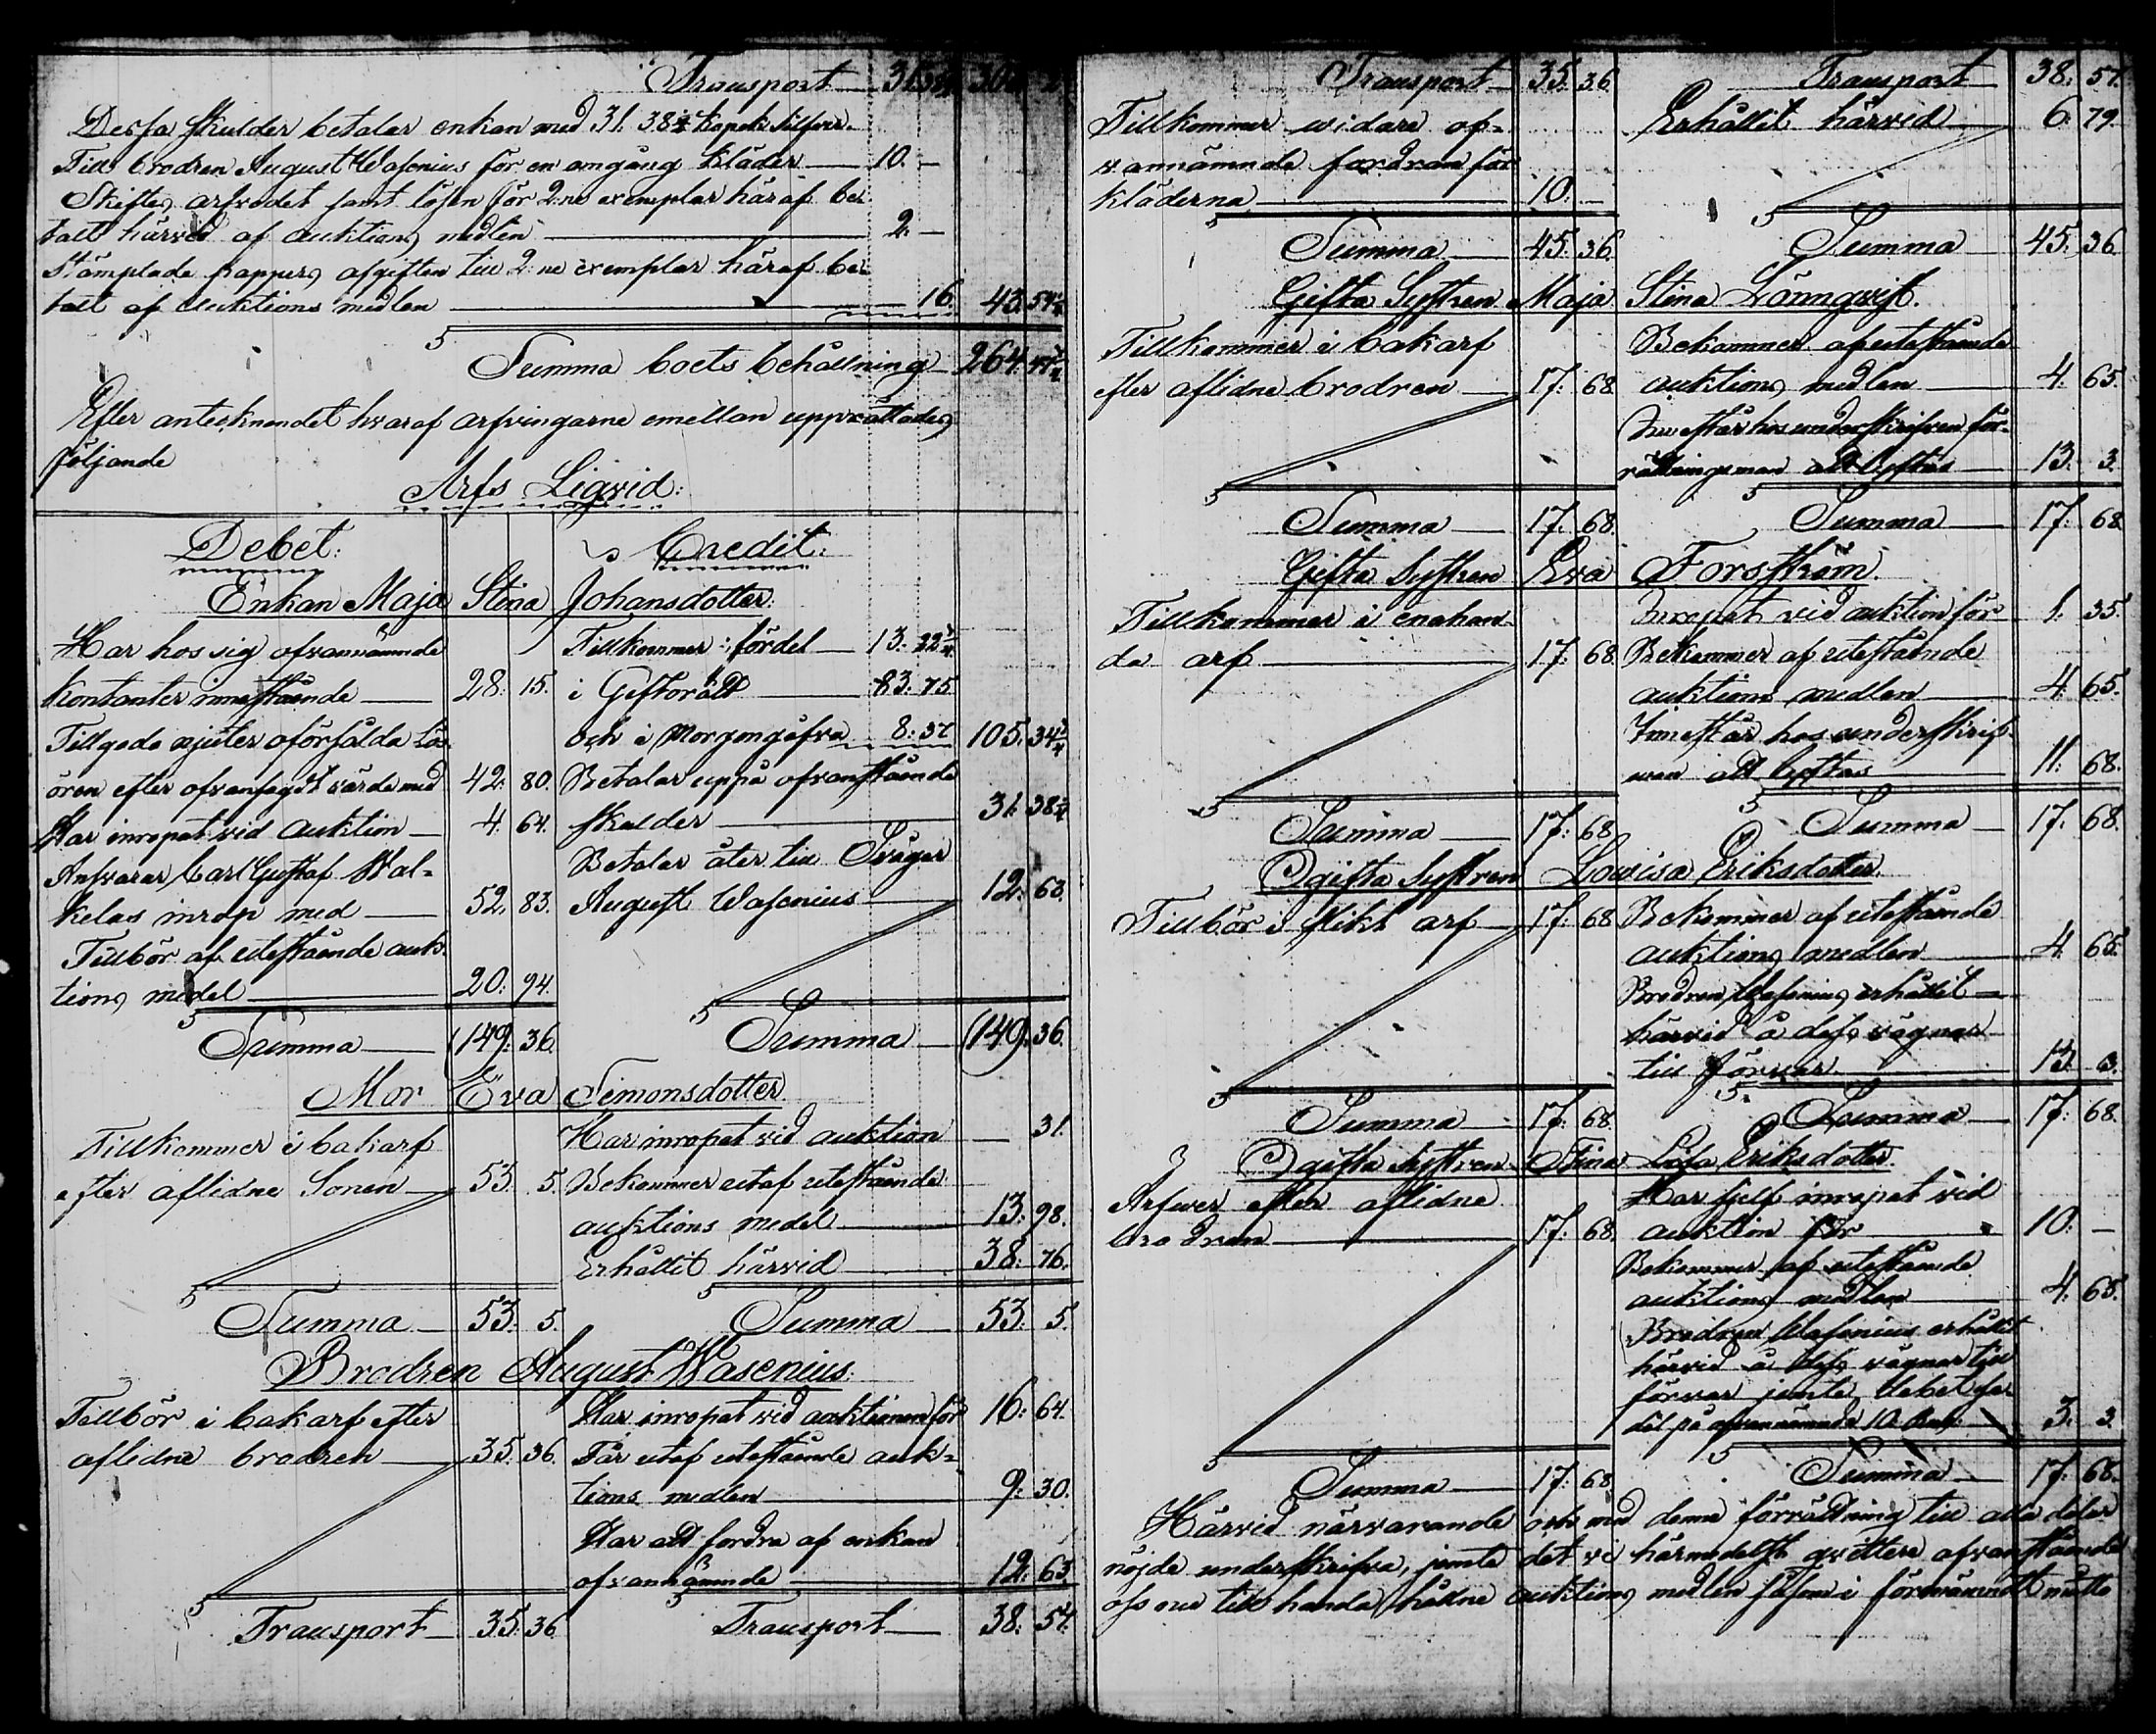 Transport 31. 38¾
Dessa skulder betalar enkan med 31. 38¾ kopek Silfver.
Till brodren August Wasenius för en omgång kläder 10. —
Skiftes arfvodet samt lösen för 2:ne exemplar häraf be-
talt härvid af auktions medlen 2. —
Stämplade pappers afgiften till 2:ne exemplar häraf be-
talt af auktions medlen 16. 43. 54¾
Summa boets behållning 264.
Efter antecknandet hvaraf arfvingarne emellan upprättades
följande
Arfs Liqvid:
Debet: Credit:
Enkan Maja Stina Johansdotter:
Har hos sig ofvannämnde Tillkommer: fördel 13. 22¾
Kontanter innestående 28. 15. i Giftorätt 83. 75.
Tillgodo njuter oförsålda Lös och i Morgongåfva 8: 37 105. 34¾
ören efter ofvansagdt värde med 42. 80. Betalar uppå ofvanstående
Har inropat vid auktion 4. 64. skulder 31. 38¾
Ansvarar Carl Gustaf Wal- Betalar åter till Svåger
kelas inrop med 52. 83. August Wasenius 12. 63.
Tillbör af utestående auk-
tions medel 20. 94.
Summa 149. 36. Summa 149. 36.
Mor Eva Simonsdotter.
Tillkommer i bakarf Har inropat vid auktion — 31.
efter aflidne Sonen 53. 5. Bekommer utaf utestående
auktions medel 13. 98.
Erhållit härvid 38. 76.
Summa 53. 5. Summa 53. 5.
Brodren August Wasenius:
Tillbör i bakarf efter Har inropat vid auktionen för 16. 64.
aflidne brodren 35. 36. Får utaf utestående auk-
tions medlen 9. 30.
Har att fordra af enkan
ofvannämnde 12. 63.
Transport 35. 36. Transport 38. 57.
Transport 35. 36. Transport 38. 57.
Tillkommer widare of- Erhållit härvid 6. 79.
vannämnde fordran för
kläderna 10. —
Summa 45. 36. Summa 45. 36.
Gifta Systren Maja Stina Lönnqvist.
Tillkommer i bakarf Bekommer af utestående
efter aflidne brodren 17. 68. auktions medlen 4. 65.
Innestår hos underskrifven för-
rättningsman att lyftas 13. 3.
Summa 17. 68. Summa 17. 68.
Gifta Systren Eva Forsström.
Tillkommer i enahan- Inropat vid auktion för 1. 35.
da arf 17. 68. Bekommer af utestående
auktions medlen 4. 65.
Innestår hos underskrif-
ven att lyftas 11. 68.
Summa 17. 68. Summa 17. 68.
Ogifta Systren Lovisa Eriksdotter.
Tillbör i slikt arf 17. 68. Bekommer af utestående
auktions medlen 4. 65.
Brodren Wasenius erhållit
härvid å dess vägnar
till förvar 13. 3.
Summa 17. 68. Summa 17. 68.
Ogifta Systren Stina Lisa Eriksdotter.
Arfwer efter aflidne Har sjelf inropat vid
brodren 17. 68. auktion för 10. —
Bekommer af utestående
auktions medlen 4. 65.
Brodren Wasenius erhållit
härvid å dess vägnar till
förvar jemte
på ofvannämnde 10 Rub. 3. 3.
Summa 17. 68. Summa 17. 68.
Härvid närvarande och med denna förrättning till alla delar
nöjde underskrifva, jemte det vi härmedelst qvittera ofvanstående
oss nu till handa auktions medlen såsom i förenämndt måtto